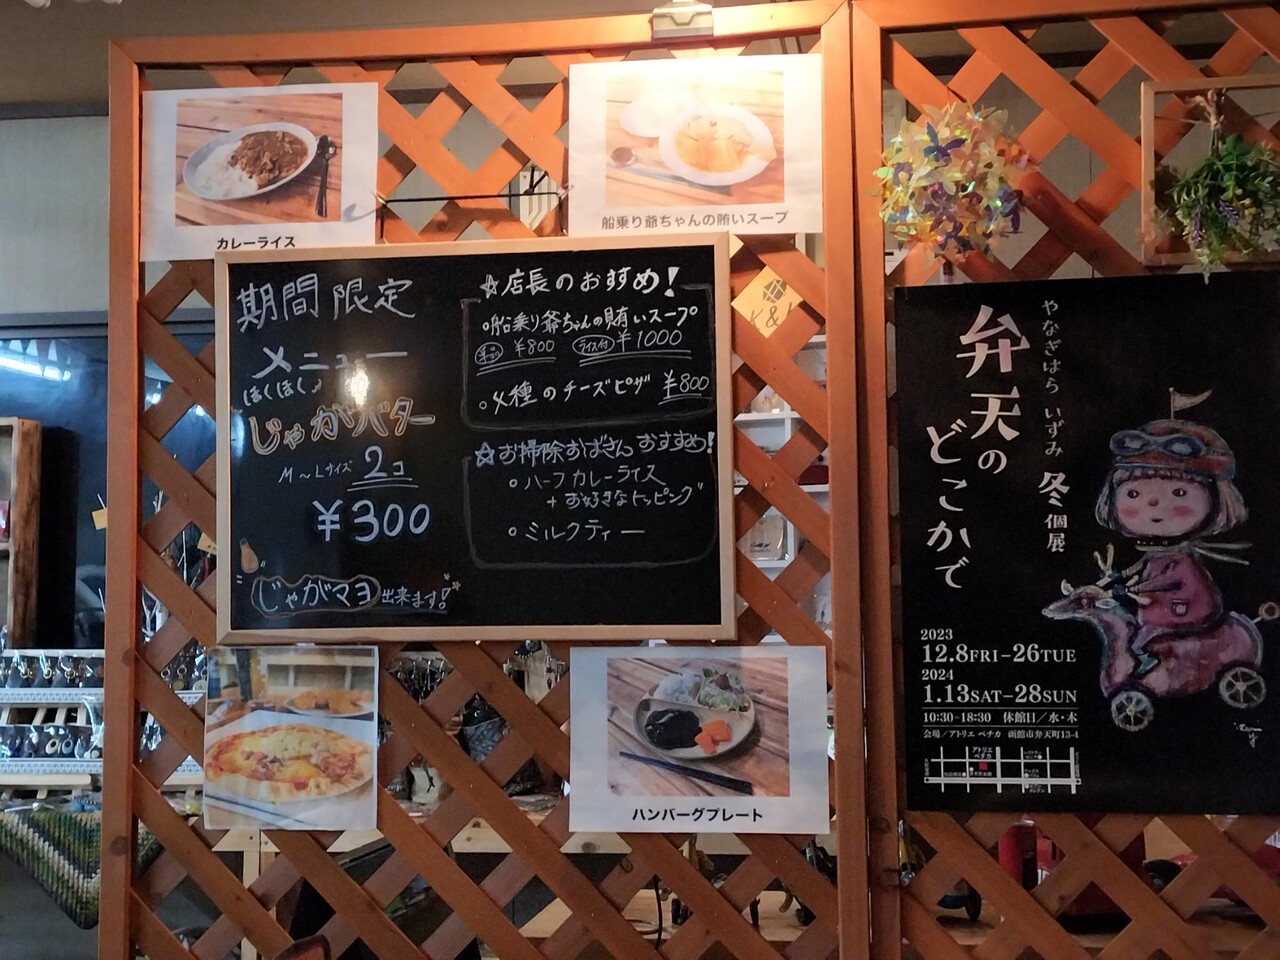 カレーライス
船乗り爺ちゃんの賄いスープ
期間限定
メニュー
ほくほく♪
じゃがバター
M～Lサイズ 2コ
¥300
じゃがマヨ出来ます!
☆店長のおすすめ!
○船乗り爺ちゃんの賄いスープ
¥800 ライス付 ¥1000
のチーズピザ ¥800
☆お掃除おばさんおすすめ!
○ハーフカレーライス
+お好きなトッピング
○ミルクティー
ハンバーグプレート
K&
やなぎはら いずみ 冬個展
弁天の
どこかで
2023
12.8FRI–26TUE
2024
1.13SAT–28SUN
10:30-18:30 休館日／水・木
会場／アトリエ ペチカ 函館市弁天町13-4
アトリエ
ペチカ